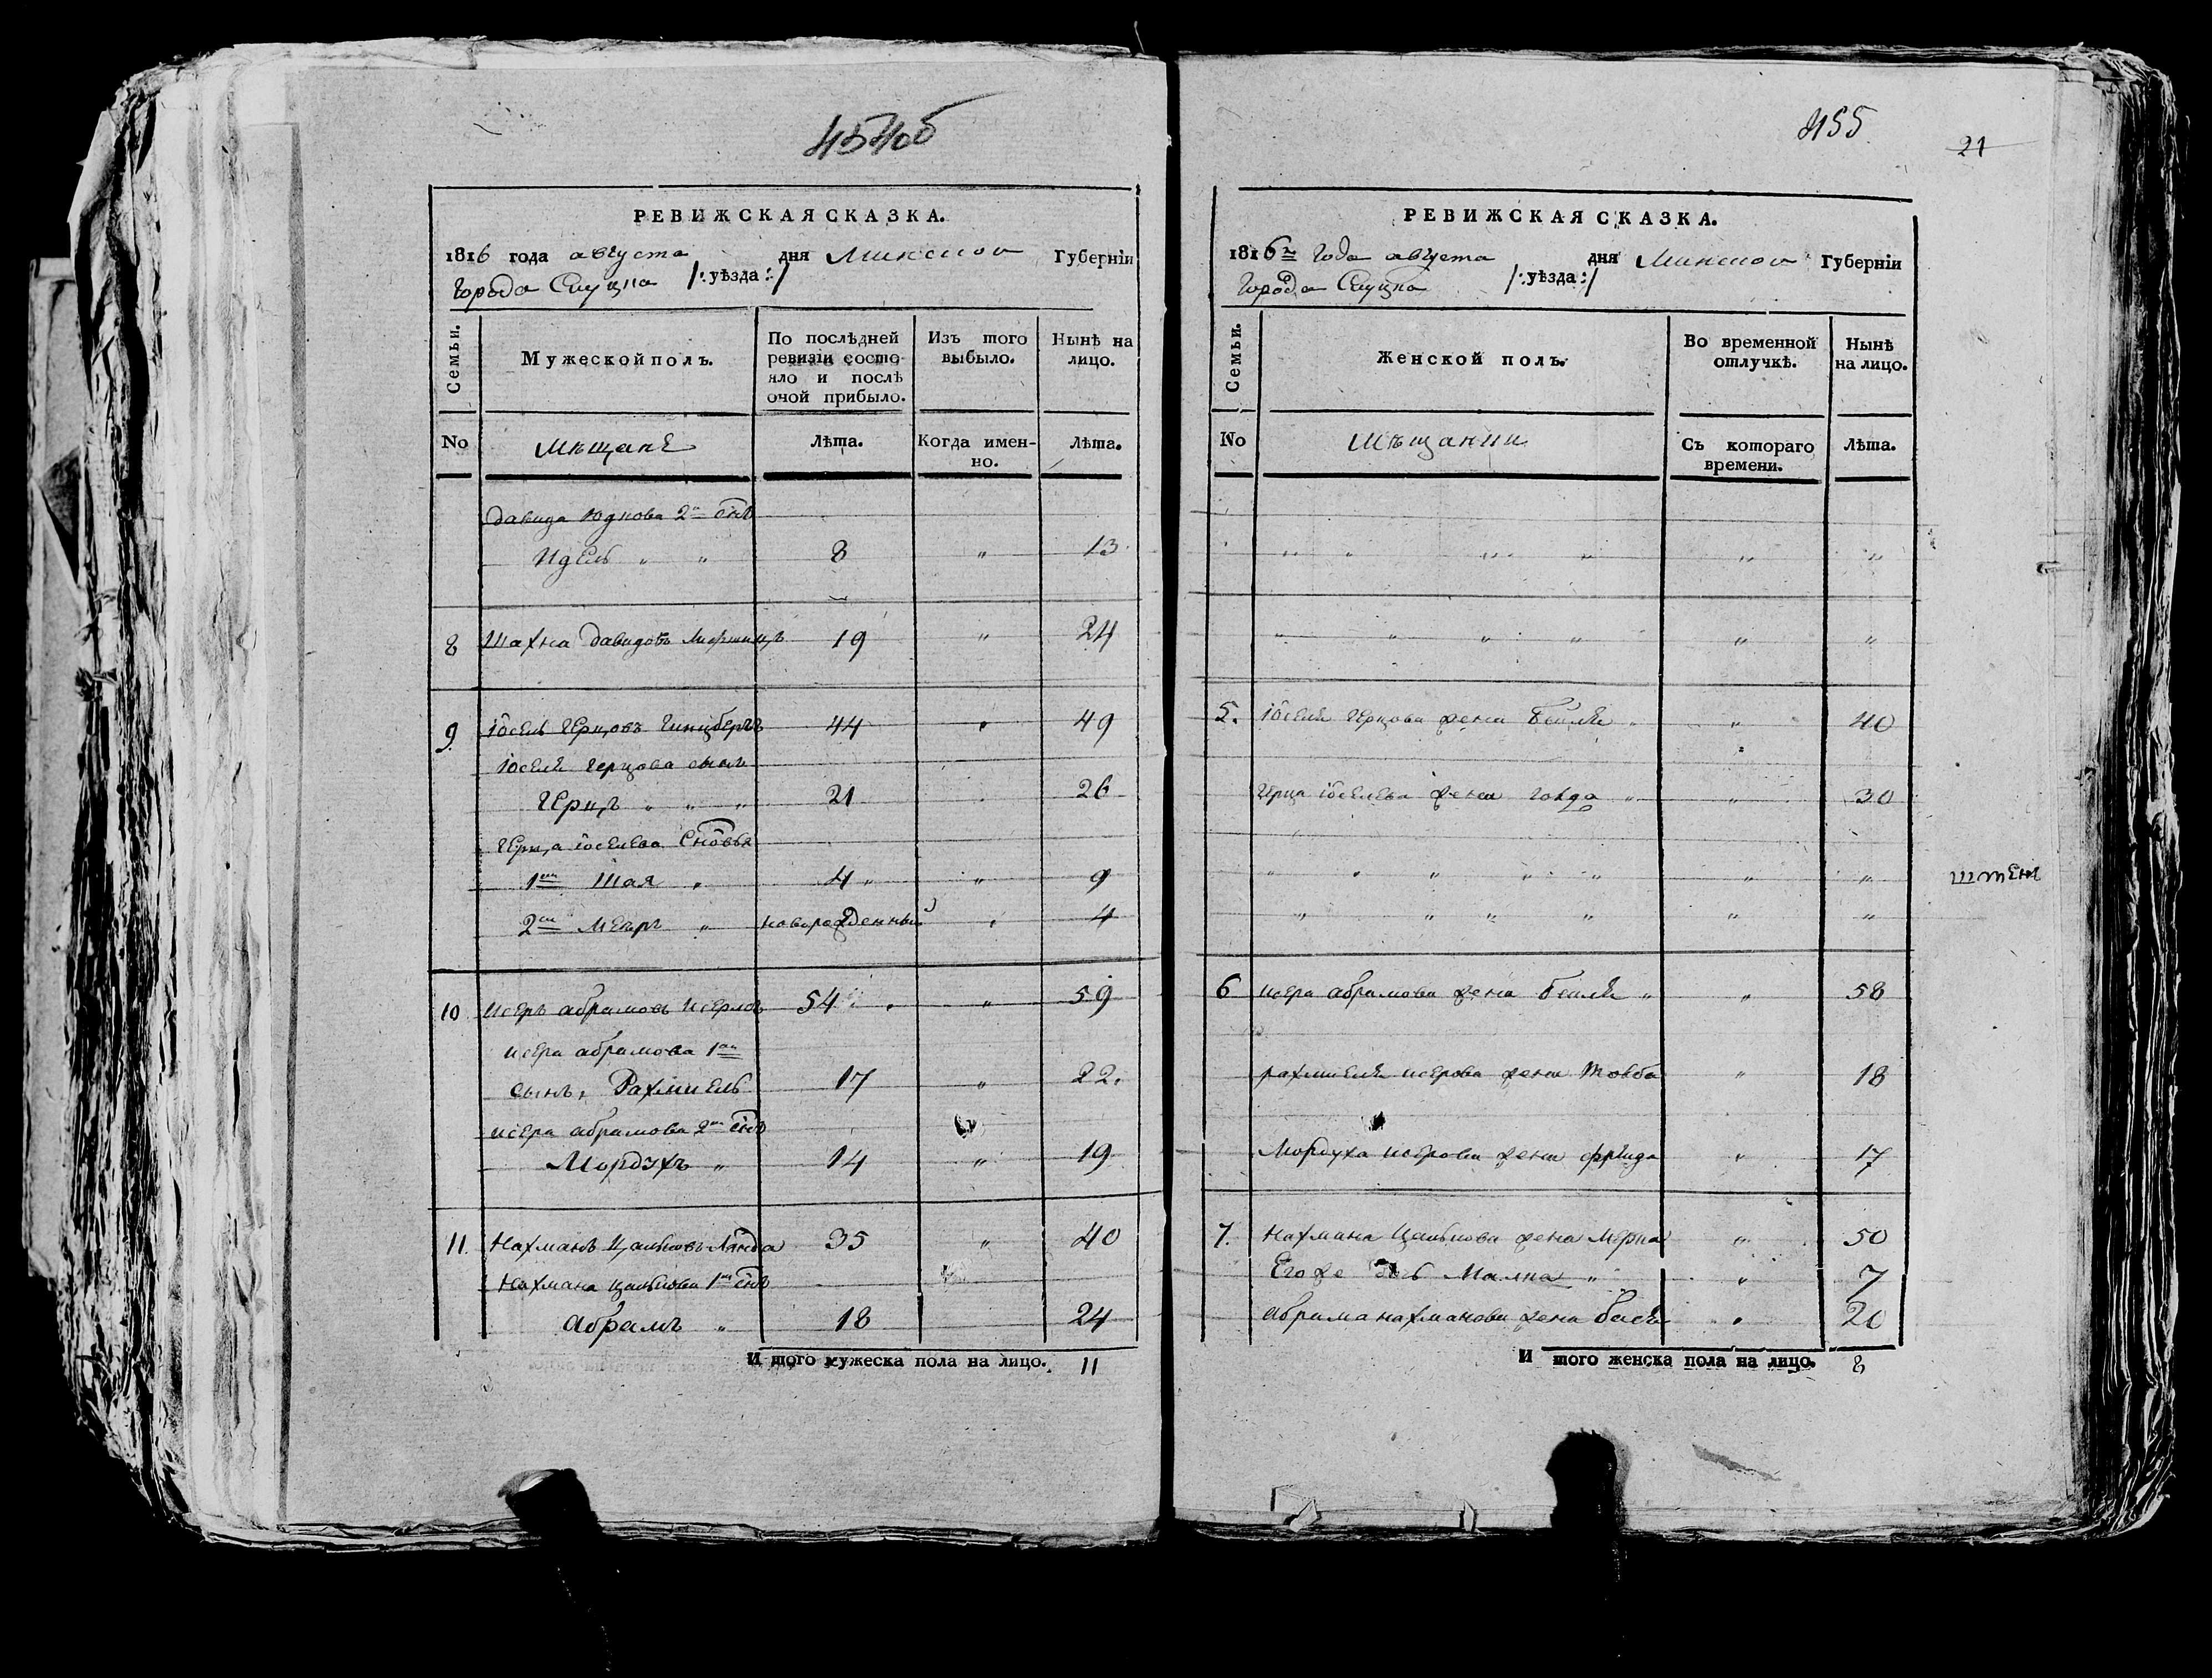 454об
РЕВИЖСКАЯ СКАЗКА.
1816 года августа дня Минской Губерніи
Города Слуцка /:уѣзда:/
Семьи. Мужеской полъ. По послѣдней ревизіи состояло и послѣ оной прибыло. Изъ того выбыло. Нынѣ на лицо.
No Мѣщане Лѣта. Когда именно. Лѣта.
Давида Юдкова 2й снъ
Идель " " 8 " 13
8 Шахна Давидовъ 19 " 24
9 Іосель Герцовъ Гинцбергъ 44 " 49
Іоселя Герцова сынъ
Герцъ " " " 21 26
Герца Іоселева сновья
1й Шая " 4 " " 9
2й Мееръ " новорожденный " 4
10 Исеръ Абрамовъ Исерловъ 54 " " 59
Исера Абрамова 1й
сынъ, Рахмиель 17 " 22.
Исера Абрамова 2й снъ
Мордухъ " 14 " 19
11. Нахманъ Цалковъ Лянда 35 " 40
Нахмана Цалкова 1й снъ
Абрамъ " 18 24
И того мужеска пола на лицо. 11
455
21
РЕВИЖСКАЯ СКАЗКА.
1816го Года августа дня Минской Губерніи
Города Слуцка /:уѣзда:/
Семьи. Женской полъ. Во временной отлучкѣ. Нынѣ на лицо.
No Мѣщанки Съ котораго времени. Лѣта.
" " " " " "
" " " " " "
5. Іоселя Герцова жена Бейля " " 40
Герца Іоселева жена Говда " " 30
" " " " " " "
" " " " " "
6 Исера Абрамова жена Бейля " " 58
Рахмиеля Исерова жена Товба " 18
Мордуха Исерова жена Фрейда " 17
7. Нахмана Цалкова жена Мерка " 50
Его же дочь Малка " " 7
Абрама Нахманова жена Бася " 20
И того женска пола на лицо. 8